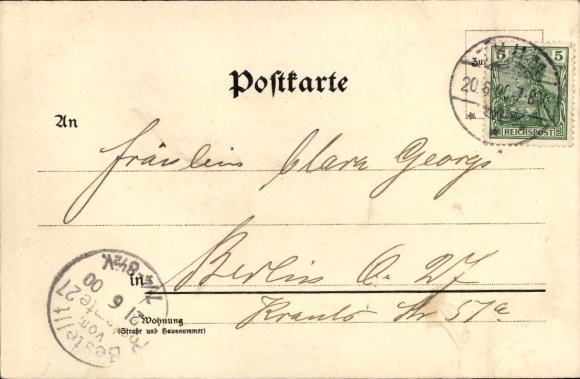 Postkarte
5 5
REICHSPOST
20.6.00.
An
Fräulein Clara Georgi
in Berlin O. 27
Krauts Str 57a
Wohnung
(Straße und Hausnummer)
Bestellt
vom
Postamte 27
21 6 00